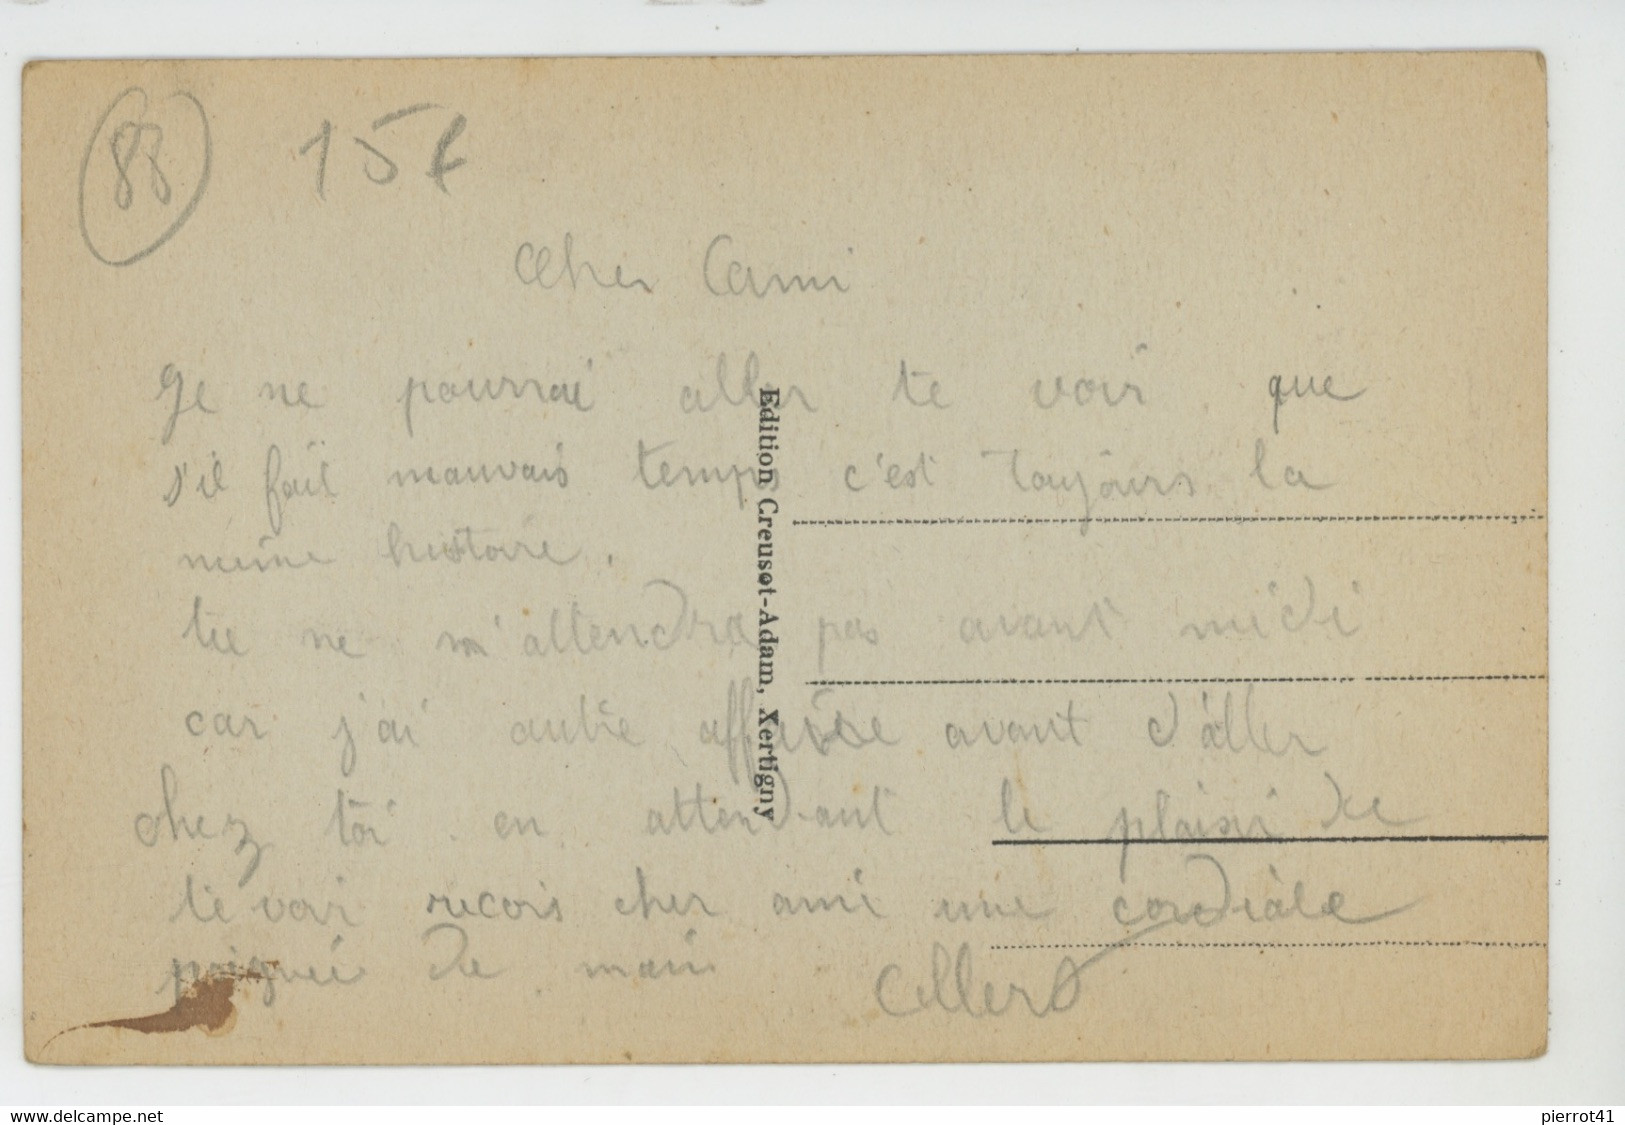 88
15f
Cher Cami
Je ne pourrai aller te voir que
s'il fait mauvais temps c'est toujours la
meme histoire.
tu ne m'attendra pas avant midi
car j'ai autre affaire avant d'aller
chez toi. en attendant le plaisir de
te voir recois cher ami une cordiale
poignée de main
Edition Creusot-Adam, Xertigny
www.delcampe.net
pierrot41